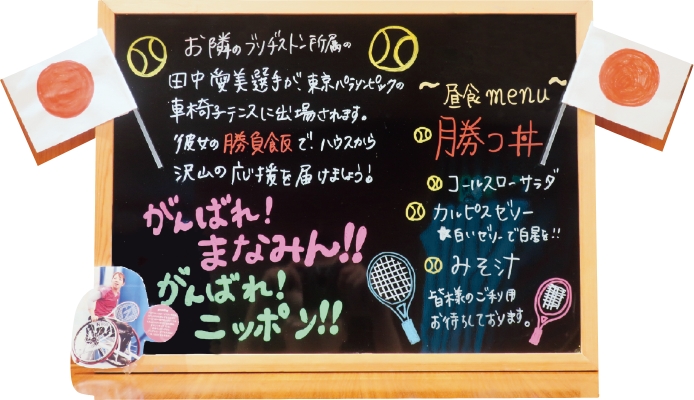 お隣のブリヂストン所属の
田中愛美選手が、東京パラリンピックの
車椅子テニスに出場されます。
彼女の勝負飯で、ハウスから
沢山の応援を届けましょう!
がんばれ!
まなみん!!
がんばれ!
ニッポン!!
~昼食menu~
勝つ丼
コールスローサラダ
カルピスゼリー
★白いゼリーで白星を!!
みそ汁
皆様のご利用
お待ちしております。